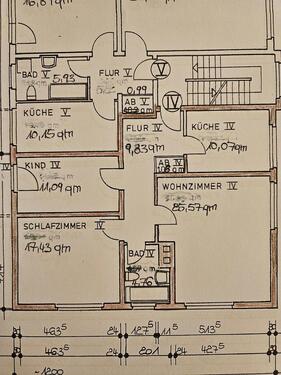 BAD V
5,93
FLUR V
0,99
AB V
V
IV
KÜCHE V
10,15 qm
FLUR IV
9,83 qm
KÜCHE IV
10,07 qm
AB IV
KIND IV
11,09 qm
WOHNZIMMER IV
25,57 qm
SCHLAFZIMMER IV
17,43 qm
BAD IV
4,76
463⁵
24
127⁵
11⁵
513⁵
463⁵
24
201
24
427⁵
~1200